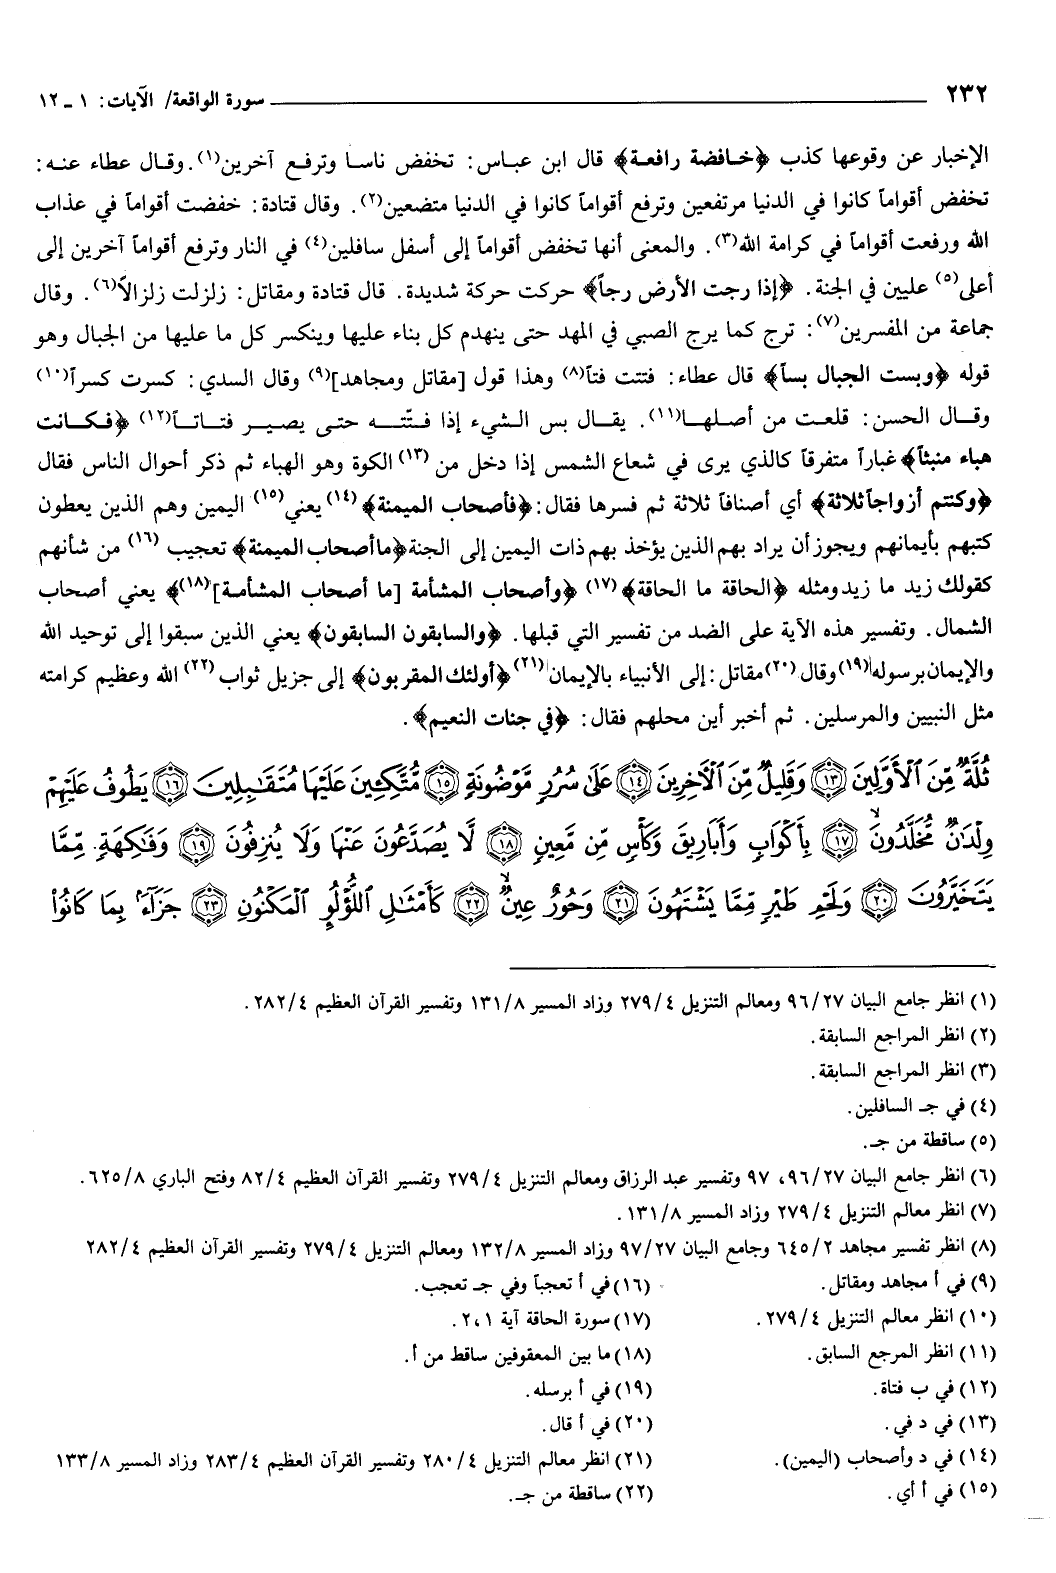 ٢٣٢ سورة الواقعة/ الآيات: ١ ـ ١٢
الإخبار عن وقوعها كذب ﴿خـافضة رافعة﴾ قال ابن عباس: تخفض ناسا وترفع آخرين(١). وقال عطاء عنه:
تخفض أقواماً كانوا في الدنيا مرتفعين وترفع أقواماً كانوا في الدنيا متضعين(٢). وقال قتادة: خفضت أقواماً في عذاب
الله ورفعت أقواماً في كرامة الله(٣). والمعنى أنها تخفض أقواماً إلى أسفل سافلين(٤) في النار وترفع أقواماً آخرين إلى
أعلى(٥) عليين في الجنة. ﴿إذا رجت الأرض رجاً﴾ حركت حركة شديدة. قال قتادة ومقاتل: زلزلت زلزالاً(٦). وقال
جماعة من المفسرين(٧): ترج كما يرج الصبي في المهد حتى ينهدم كل بناء عليها وينكسر كل ما عليها من الجبال وهو
قوله ﴿وبست الجبال بساً﴾ قال عطاء: فتتت فتاً(٨) وهذا قول [مقاتل ومجاهد](٩) وقال السدي: كسرت كسراً(١٠)
وقال الحسن: قلعت من أصلها(١١). يقال بس الشيء إذا فتّته حتى يصير فتاتاً(١٢) ﴿فكانت
هباء منبثاً﴾ غباراً متفرقاً كالذي يرى في شعاع الشمس إذا دخل من (١٣) الكوة وهو الهباء ثم ذكر أحوال الناس فقال
﴿وكنتم أزواجاً ثلاثة﴾ أي أصنافاً ثلاثة ثم فسرها فقال: ﴿فأصحاب الميمنة﴾(١٤) يعني(١٥) اليمين وهم الذين يعطون
كتبهم بأيمانهم ويجوز أن يراد بهم الذين يؤخذ بهم ذات اليمين إلى الجنة ﴿ما أصحاب الميمنة﴾ تعجيب (١٦) من شأنهم
كقولك زيد ما زيد ومثله ﴿الحاقة ما الحاقة﴾(١٧) ﴿وأصحاب المشأمة [ما أصحاب المشأمة](١٨)﴾ يعني أصحاب
الشمال. وتفسير هذه الآية على الضد من تفسير التي قبلها. ﴿والسابقون السابقون﴾ يعني الذين سبقوا إلى توحيد الله
والإيمان برسوله(١٩) وقال (٢٠) مقاتل: إلى الأنبياء بالإيمان(٢١) ﴿أولئك المقربون﴾ إلى جزيل ثواب (٢٢) الله وعظيم كرامته
مثل النبيين والمرسلين. ثم أخبر أين محلهم فقال: ﴿في جنات النعيم﴾.
ثُلَّةٌ مِّنَ ٱلْأَوَّلِينَ ١٣ وَقَلِيلٌ مِّنَ ٱلْآخِرِينَ ١٤ عَلَىٰ سُرُرٍ مَّوْضُونَةٍ ١٥ مُّتَّكِـِٔينَ عَلَيْهَا مُتَقَـٰبِلِينَ ١٦ يَطُوفُ عَلَيْهِمْ
وِلْدَٰنٌ مُّخَلَّدُونَ ١٧ بِأَكْوَابٍ وَأَبَارِيقَ وَكَأْسٍ مِّن مَّعِينٍ ١٨ لَّا يُصَدَّعُونَ عَنْهَا وَلَا يُنزِفُونَ ١٩ وَفَـٰكِهَةٍ مِّمَّا
يَتَخَيَّرُونَ ٢٠ وَلَحْمِ طَيْرٍ مِّمَّا يَشْتَهُونَ ٢١ وَحُورٌ عِينٌ ٢٢ كَأَمْثَـٰلِ ٱللُّؤْلُوِٕ ٱلْمَكْنُونِ ٢٣ جَزَآءًۢ بِمَا كَانُوا۟
(١) انظر جامع البيان ٩٦/٢٧ ومعالم التنزيل ٢٧٩/٤ وزاد المسير ١٣١/٨ وتفسير القرآن العظيم ٢٨٢/٤.
(٢) انظر المراجع السابقة.
(٣) انظر المراجع السابقة.
(٤) في جـ السافلين.
(٥) ساقطة من جـ.
(٦) انظر جامع البيان ٩٦/٢٧، ٩٧ وتفسير عبد الرزاق ومعالم التنزيل ٢٧٩/٤ وتفسير القرآن العظيم ٨٢/٤ وفتح الباري ٦٢٥/٨.
(٧) انظر معالم التنزيل ٢٧٩/٤ وزاد المسير ١٣١/٨.
(٨) انظر تفسير مجاهد ٦٤٥/٢ وجامع البيان ٩٧/٢٧ وزاد المسير ١٣٢/٨ ومعالم التنزيل ٢٧٩/٤ وتفسير القرآن العظيم ٢٨٢/٤
(٩) في أ مجاهد ومقاتل.
(١٠) انظر معالم التنزيل ٢٧٩/٤.
(١١) انظر المرجع السابق.
(١٢) في ب فتاة.
(١٣) في د في.
(١٤) في د وأصحاب (اليمين).
(١٥) في أ أي.
(١٦) في أ تعجباً وفي جـ تعجب.
(١٧) سورة الحاقة آية ١، ٢.
(١٨) ما بين المعقوفين ساقط من أ.
(١٩) في أ برسله.
(٢٠) في أ قال.
(٢١) انظر معالم التنزيل ٢٨٠/٤ وتفسير القرآن العظيم ٢٨٣/٤ وزاد المسير ١٣٣/٨
(٢٢) ساقطة من جـ.